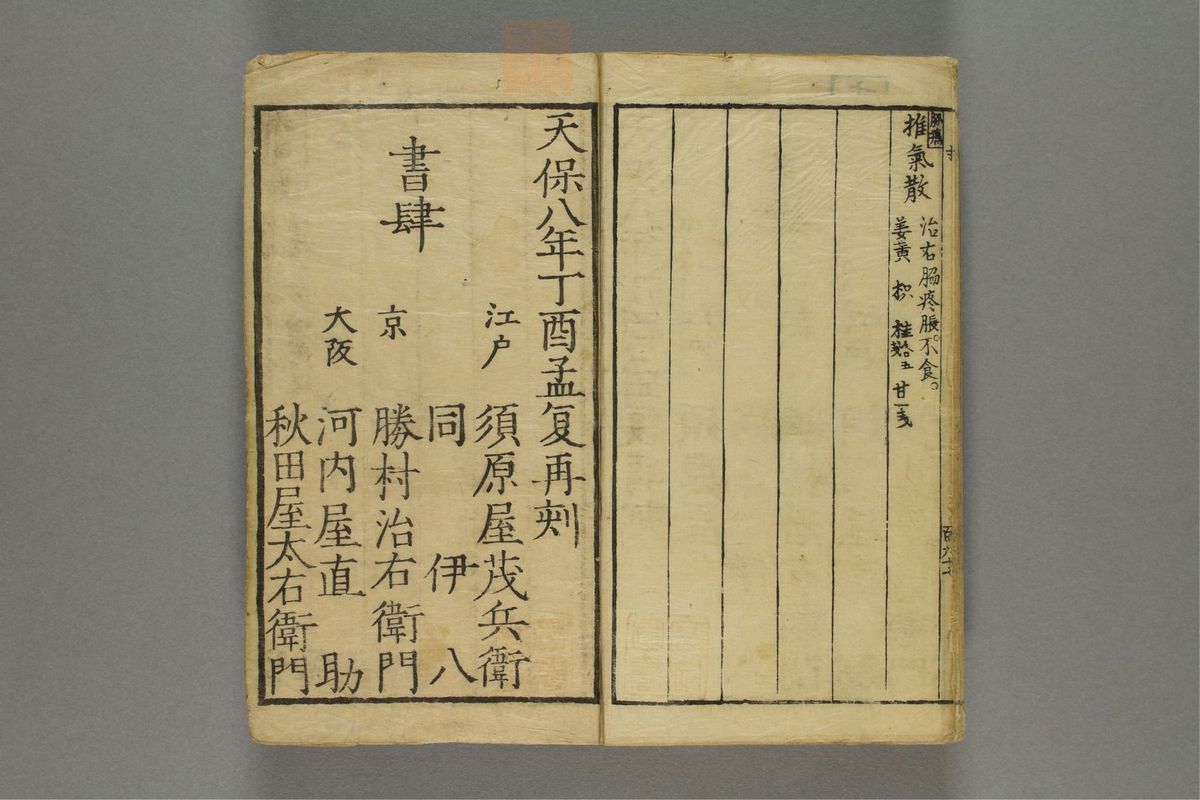 推氣散
治右肠疼脹。不食。
姜黄 枳 桂各五 甘一戋
天保八年丁酉孟夏再刻
江戸 須原屋茂兵衛
同 伊八
書肆
京 勝村治右衛門
大阪 河内屋直助
秋田屋太右衛門